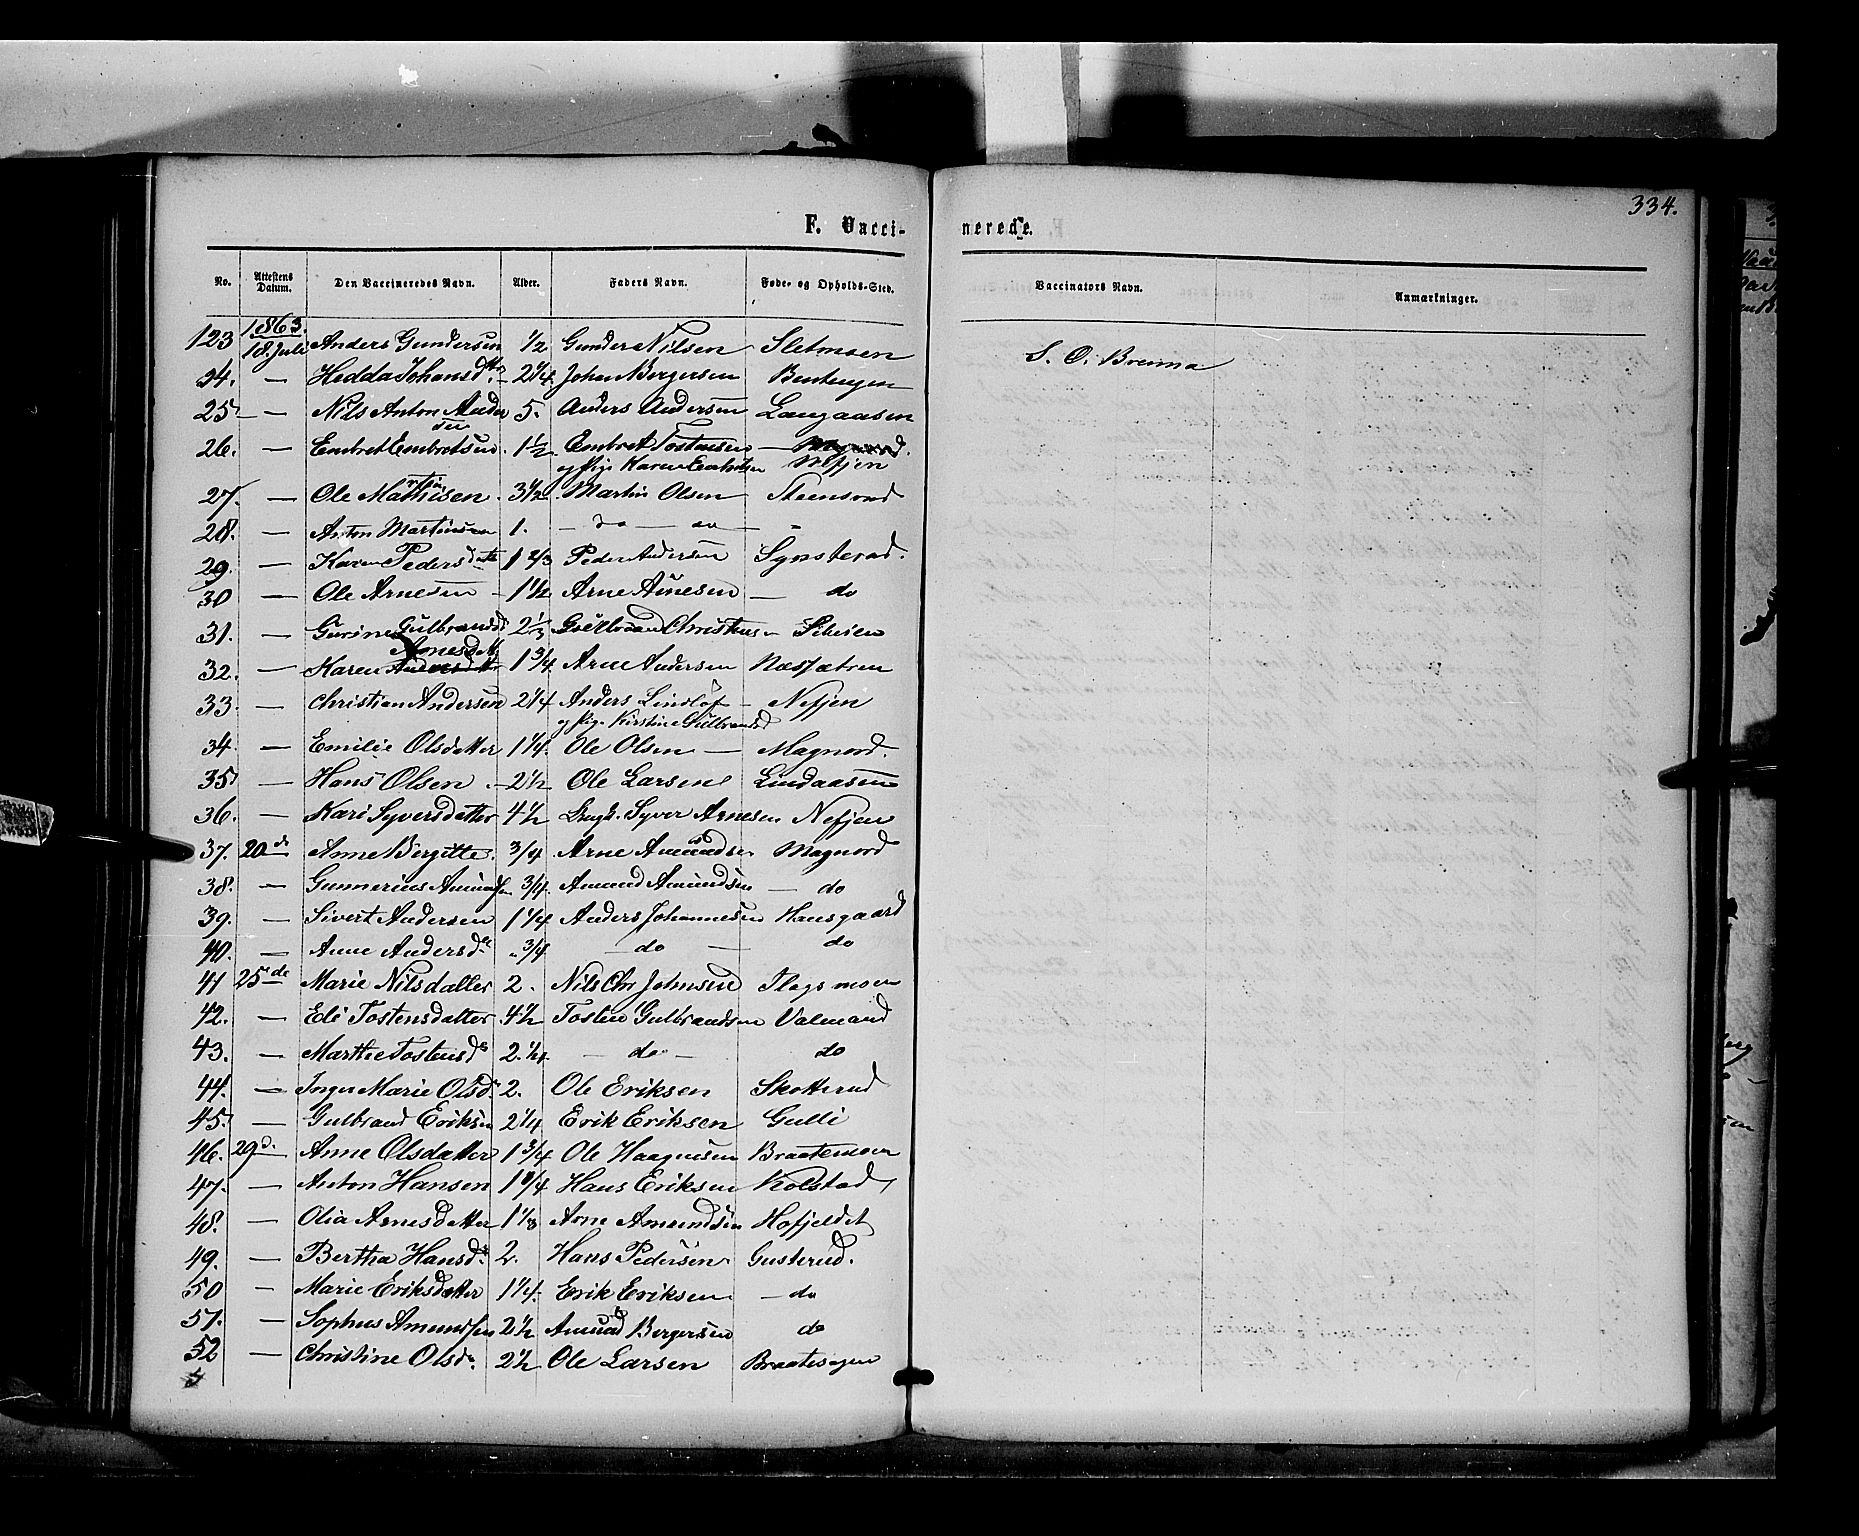 334.
F. Vacci- nerede.
No. Attestens Datum. Den Vaccineredes Navn. Alder. Faders Navn. Føde- og Opholds-Sted. Vaccinators Navn. Anmærkninger.
1863.
123 18. Juli Anders Gundersen 1/2 Gunder Nilsen Sletmoen S. O. Brenna
24. — Hedda Johansdtr. 2 1/4 Johan Bergersen
25 — Nils Anton Andersen 5. Anders Andersen Langaasen
26. — Embret Embretsen 1 1/2 Embret Tostensen —
og Pige Karen Nefjen
27. — Ole Martinsen 3 1/2 Martin Olsen Steensrud
28. — Anton Martinsen 1. — do — — "
29. — Karen Pedersdatter 1 2/3 Peder Andersen Synsterud.
30 — Ole Arnesen 1 1/2 Arne Arnesen — do
31. — Gurine Gulbrandsd 2 1/3 Gulbrand Christens
32. — Karen Arnesdtr 1 3/4 Arne Andersen Næssætren
33 — Christian Andersen 2 1/4 Anders Lindlöf — Nefjen
og Pige Kirstine Gulbrandsd
34. — Emilie Olsdatter 1 1/4. Ole Olsen — Magnord.
35 — Hans Olsen 2 1/2 Ole Larsen Lindaasen
36. — Kari Syversdatter 4 1/2 Syver Arnesen Nefjen
37. 20de Anne Bergitte. 3/4 Arne Amundsen Magnord
38. — Gunnerius Amundsen 3/4. Amund Amundsen — do
39. — Sivert Andersen 1 1/4 Anders Johannesen Hansgaard
40. — Anne Andersdr 3/4 — do — do
41 25de Marie Nilsdatter 2. Nils Chr Johnsen Flagsmoen
42. — Eli Tostensdatter 4 1/2 Tosten Gulbrandsen
43. — Marthe Tostensdr 2 1/4. — do — do
44. — Inger Marie Olsd. 2. Ole Eriksen Skotterud
45. — Gulbrand Eriksen 2 1/4 Erik Eriksen Gulli
46. 29d. Anne Olsdatter 1 3/4 Ole Haagensen Braatemoen
47. — Anton Hansen 1 1/4 Hans Eriksen Kolstad
48. — Olia Arnesdatter 1 1/3 Arne Amundsen Hofjeldet
49. — Bertha Hansdr. 2. Hans Pedersen Gusterud.
50 — Marie Eriksdatter 1 1/4. Erik Eriksen — do
51. — Sophus Amundsen 2 1/2 Amund Bergersen do
52 — Christine Olsdr. 2 1/2 Ole Larsen